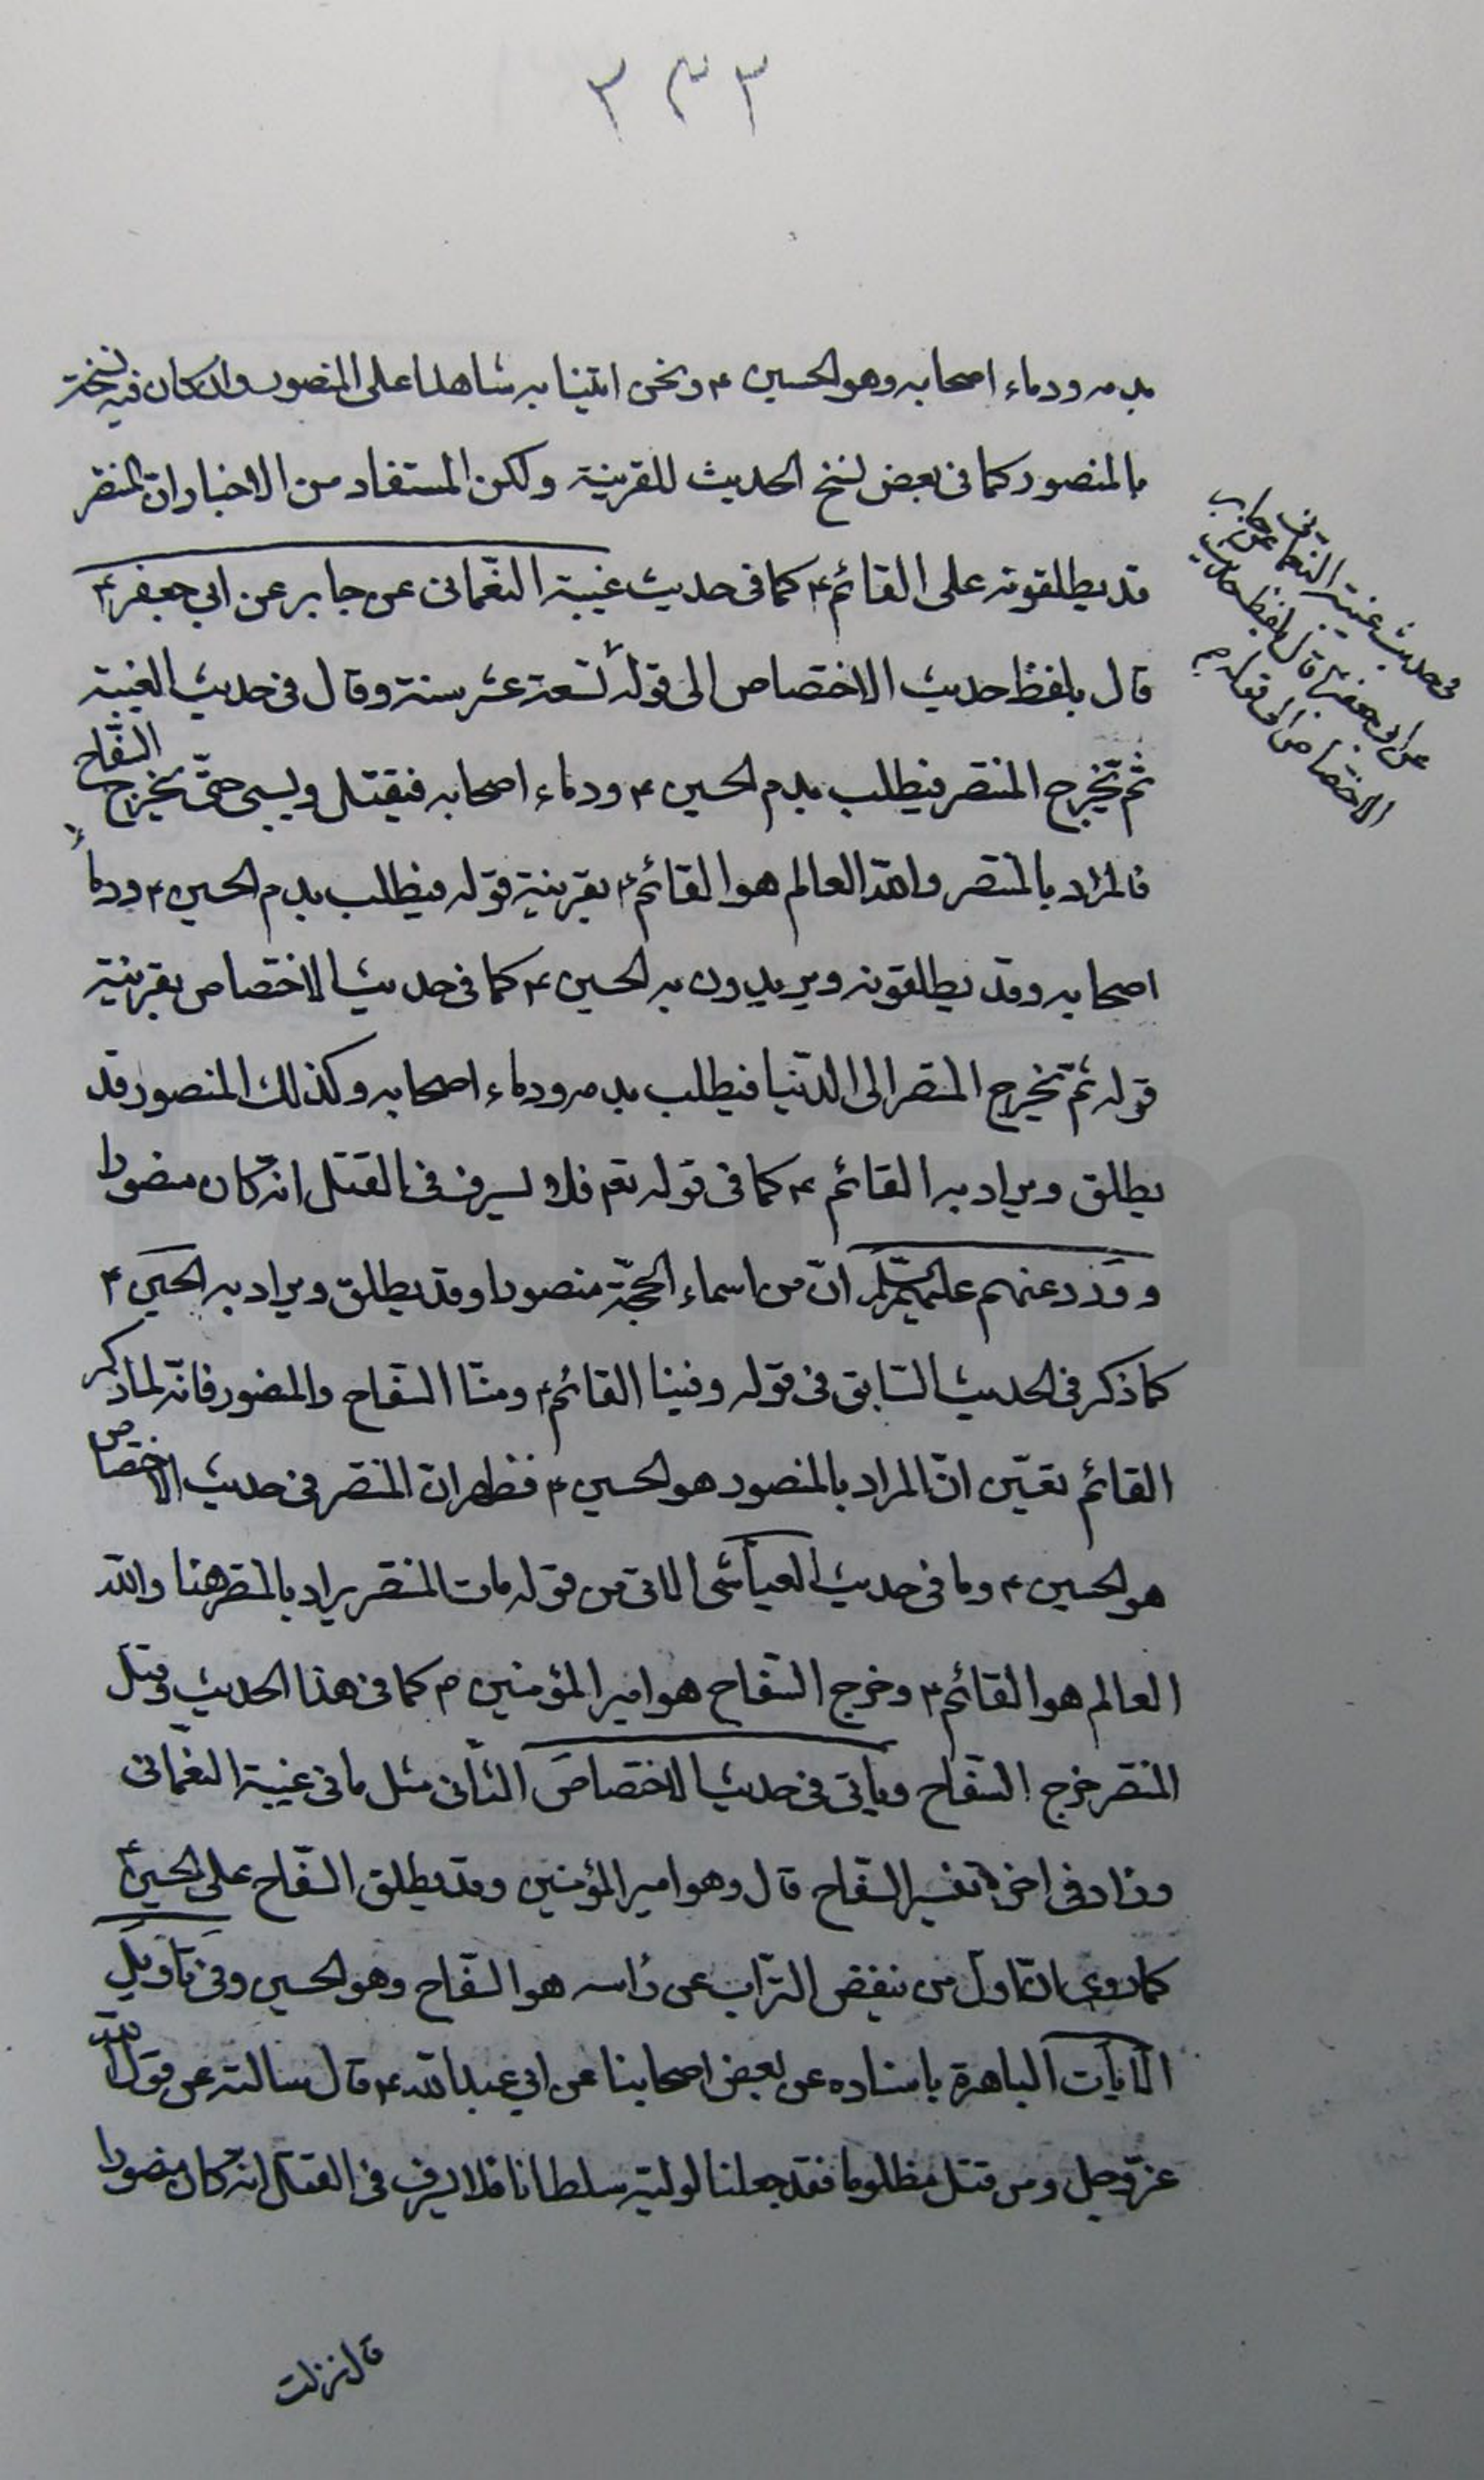 ٣٣٣
بدمه ودماء اصحابه وهو الحسين ع ونحن اتينا به شاهدا على المنصور وان كان فيه نسخة
بالمنصور كما فى بعض نسخ الحديث للقرينة ولكن المستفاد من الاخبار ان المنتصر
قد يطلقونه على القائم ع كما فى حديث غيبة النعمانى عن جابر عن ابي جعفر ع
قال بلفظ حديث الاختصاص الى قوله تسعة عشر سنة وقال فى حديث الغيبة
ثم يخرج المنتصر فيطلب بدم الحسين ع ودماء اصحابه فيقتل ويسبى حتّى يخرج السفّاح
فالمراد بالمنتصر والله العالم هو القائم ع بقرينة قوله فيطلب بدم الحسين ع ودماء
اصحابه وقد يطلقونه ويريدون به الحسين ع كما فى حديث الاختصاص بقرينة
قوله ثم يخرج المنتصر الى الدّنيا فيطلب بدمه ودماء اصحابه وكذلك المنصور قد
يطلق ويراد به القائم ع كما فى قوله تعم فلا يسرف فى القتل انه كان منصورا
وورد عنهم عليهم السّلم انّ من اسماء الحجّة منصورا وقد يطلق ويراد به الحسين ع
كما ذكر فى الحديث السّابق فى قوله وفينا القائم ع ومنّا السفّاح والمنصور فانّه لما ذكر
القائم تعيّن انّ المراد بالمنصور هو الحسين ع فظهر ان المنتصر فى حديث الاختصاص
هو الحسين ع وما فى حديث العيّاشى الاتى من قوله مات المنتصر يراد بالمنتصر هنا والله
العالم هو القائم ع وخرج السّفاح هو امير المؤمنين ع كما فى هذا الحديث وقتل
المنتصر خرج السفّاح وياتى فى حديث الاختصاص الثّانى مثل ما فى غيبة النعّمانى
وزاد فى اخره تفسير السفّاح قال وهو امير المؤمنين وقد يطلق السفّاح على الحسين ع
كما روى ان اول من ينفض التّراب عن رأسه هو السفّاح وهو الحسين وفى تاويل
الايات الباهرة باسناده عن بعض اصحابنا عن ابي عبد الله ع قال سالته عن قول الله
عزّ وجل ومن قتل مظلوما فقد جعلنا لوليّه سلطانا فلا يسرف فى القتل انه كان منصورا
قال نزلت
فى حديث غيبة النعمانى عن جابر
عن ابى جعفر ع قال بلفظ حديث
الاختصاص الى قوله